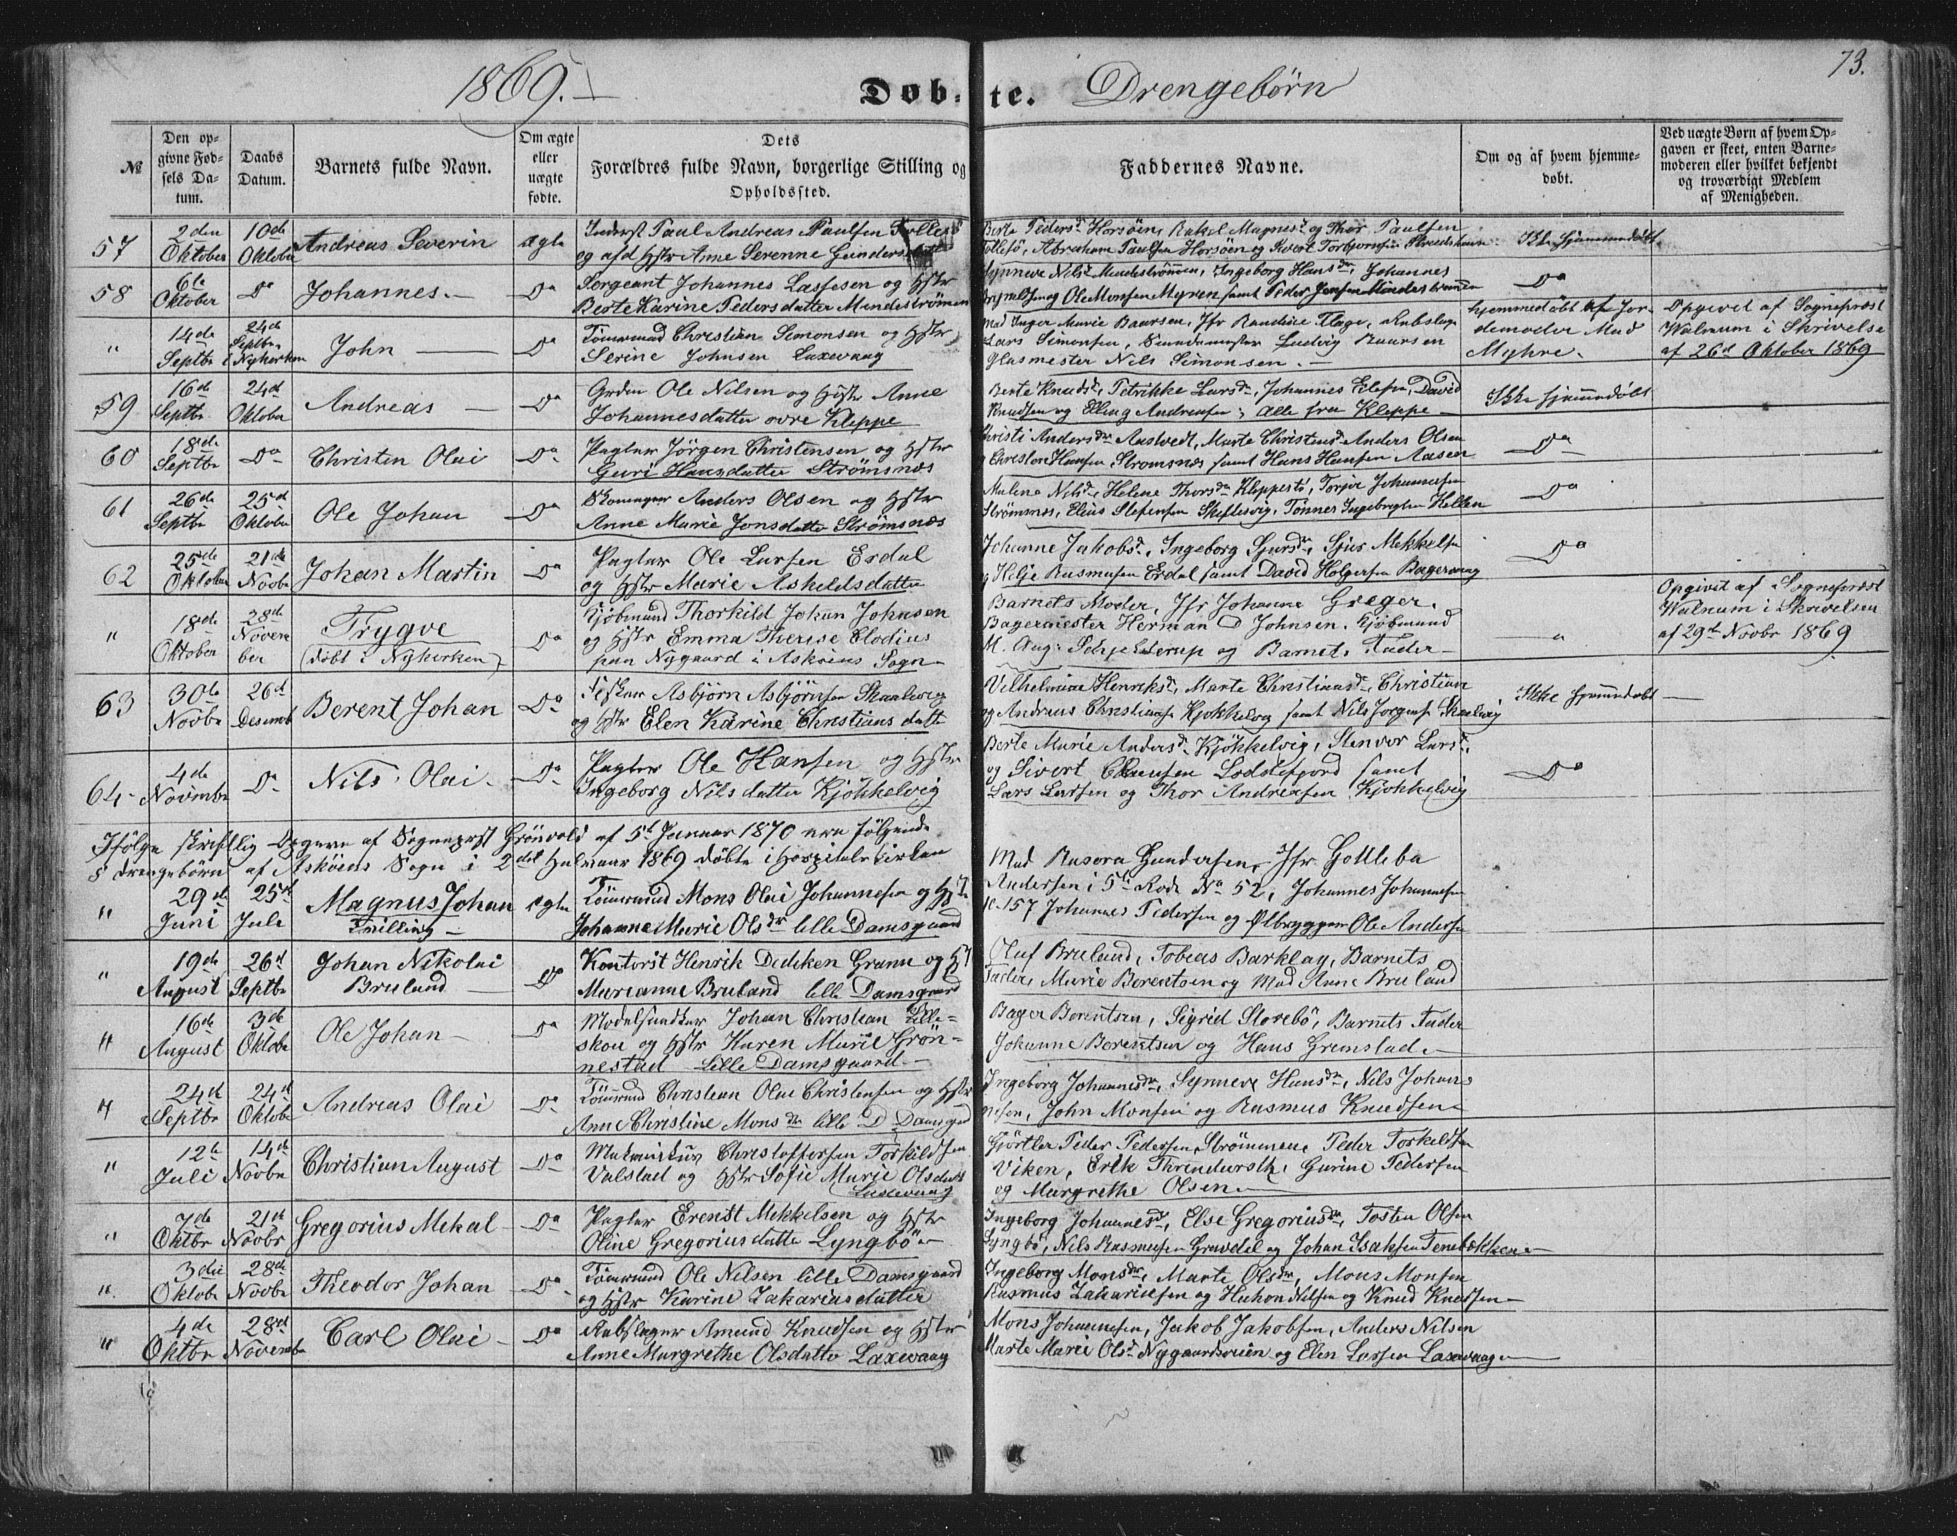 1869.
Døbte. Drengebørn
73.
№
Den opgivne Fødsels Datum.
Daabs Datum.
Barnets fulde Navn.
Om ægte eller uægte fødte.
Dets Forældres fulde Navn, borgerlige Stilling og Opholdssted.
Faddernes Navne.
Om og af hvem hjemmedøbt.
Ved uægte Børn af hvem Opgaven er skeet, enten Barnemoderen eller hvilket bekjendt og troværdigt Medlem af Menigheden.
57 2den Oktober 10de Oktober Andreas Severin ægte
Inderst Paul Andreas Paulsen
og afd Hstr Anne Serenne
Berte Pedersd Horsøen, Rakel Magnesd og Thor Paulsen
Follesø, Abraham Paulsen Horsøen og Sivert Torbjørnsen
Ikke hjemmedøbt
58 6te Oktober Do Johannes Do
Sergeant Johannes Lassesen og Hstr
Berte Karine Pedersdatter Mindestrømmen
Synneve Nilsd Mindestrømmen, Ingeborg Hansdr, Johannes
og Ole Monsen Myren samt Peder Jensen Mindestrømmen
Do
" 14de Septbr 24de Septbr i Nykerken John Do
Tømrmnd Christian Simonsen og Hstr
Serine Johnsen Laxevaag
Mad Inger Marie Baarsen, Jfr Randine Flage, Rebslager
Lars Simonsen, Ludvig Baarsen
Glasmester Nils Simonsen
hjemmedøbt af Jordemoder Mad Myhre.
Opgivet af Sogneprest
Walnum i Skrivelse
af 26d Oktober 1869
59 16de Septbr 24de Oktober Andreas Do
Grdm Ole Nilsen og Hstr Anne
Johannesdatter øvre Kleppe
Berte Knudsd, Petrikke Larsd, Johannes Elefsen, David
Knudsen og Elling Andreasen, alle fra Kleppe
Ikke hjemmedøbt
60 18de Septbr Do Christen Olai Do
Pagter Jørgen Christensen og Hstr
Guri Hansdatter Strømsnæs
Christi Andersdr Aastvedt, Marte Christensd Anders Olsen
og Christen Hansen Strømsnæs samt Hans Hansen Aasen
Do
61 26de Septbr 25d Oktobr Ole Johan Do
Skomager Anders Olsen og Hstr
Anne Marie Jonsdatter Strømsnæs
Malene Nilsd, Helene Thorsdr Kleppestø, Torger Johannesen
Strømsnæs, Elias Stefensen Skiftesvig, Tønnes Ingebrigtsen Hellen
Do
62 25de Oktober 21de Novbr Johan Martin Do
Pagter Ole Larsen Erdal
og Hstr Marie Askeldsdatter
Johanne Jakobsd, Ingeborg Sjursdr, Sjur Mekkelsen
og Helje Rasmusen Erdal samt David Holgersen Bagervaag
Do
" 18de Oktober 28de November Trygve
(døbt i Nykerken) Do
Kjøbmand Thorkild Johan Johnsen
og Hstr Emma Therese Clodius
paa Nygaard i Askøens Sogn
Barnets Moder, Jfr Johanne Greger,
Bagermester Herman D Johnsen, Kjøbmand
M. Aug: Schjelderup og Barnets Fader
"
Opgivet af Sogneprest
Walnum i Skrivelsen
af 29de Novbr 1869
63 30de Novbr 26d Desembr Berent Johan Do
Fisker Asbjørn Asbjørnsen Skaalevig
og Hstr Elen Karine Christiansdatter
Vilhelmine Henriksd, Marte Christiansd, Christian
og Andreas Christiansen Kjøkkelvig samt Nils Jørgensen Skaalevig
Ikke hjemmedøbt
64 4de Novmbr Do Nils Olai Do
Pagter Ole Hansen og Hstr
Ingeborg Nilsdatter Kjøkkelvig
Berte Marie Andersd Kjøkkelvig, Stenvor Larsd,
og Sivert Clausen Loddefjord samt
Lars Larsen og Thor Andreasen Kjøkkelvig
Do
Ifølge skriftlig Opgave af Sogneprest Grønvold af 5d Januar 1870 ere følgende
8 drengebørn af Askøens Sogn i 2det Halvaar 1869 døbte i Hospitalskirken
" 29de Juni 25de Juli Magnus Johan
Tvilling ægte
Tømrmnd Mons Olai Johannesen og Hstr
Johanne Marie Olsdr lille Damsgaard
Mad Rasora Gundersen, Jfr Gotleba
Andersen i 5te Rode No 52, Johannes Johannesen
157 Johannes Pedersen og Ølbrygger Ole Andersen
" 19de August 26d Septbr Johan Nikolai
Bruland Do
Kontorist Henrik Dedeken Grann og Hst
Marianne Bruland lille Damsgaard
Oluf Bruland, Tobias Barklay, Barnets
Fader, Marie Berentsen og Mad Anne Bruland
" 16de August 3de Oktobr Ole Johan Do
Modelsnedker Johan Christian Lilleskou og Hstr Karen Marie Grønnestad Lille Damsgaard
Bager Berentsen, Sigrid Storebø, Barnets Fader
Johanne Berentsen og Hans Gremstad
" 24de Septbr 24de Oktobr Andreas Olai Do
Tømrmnd Christian Olai Christensen og Hstr
Anne Christine Monsdr lille Damsgrd
Ingeborg Johannesdr, Synneve Hansdr, Nils Johannesen, John Monsen og Rasmus Knudsen
" 12te Juli 14de Novbr Christian August Do
Maskinist Christoffersen Torkildsen
Valstad og Hstr Sofie Marie Olsdatter
Laxevaag
Gjørtler Peder Pedersen Strømmen, Peder Torkildsen
Viken, Erik, Gurine Pedersen
og Margrethe Olsen
" 7de Oktbr 21de Novbr Gregorius Mekal Do
Pagter Erenst Mekkelsen og Hstr
Oline Gregoriusdatter Lyngbø
Ingeborg Johannesd, Else Gregoriusd, Tosten Olsen
Lyngbø, Nils Rasmusen Gravdal og Johan Isaksen Tenebekken
" 3die Oktobr 28de Novbr Theodor Johan Do
Tømrmnd Ole Nilsen lille Damsgaard
og Hstr Karine Zakariasdatter
Ingeborg Monsdr, Marte Olsdr, Mons Monsen
Rasmus Zakariasen og Haakon Nilsen og Knud Knudsen
" 4de Oktbr 28de Novembr Carl Olai Do
Rebslager Amund Knudsen og Hstr
Anne Margrethe Olsdatter Laxevaag
Mons Johannesen, Jakob Jakobsen, Anders Nilsen
Marte Marie Olsd Nygaardsveien og Elen Larsen Laxevaag